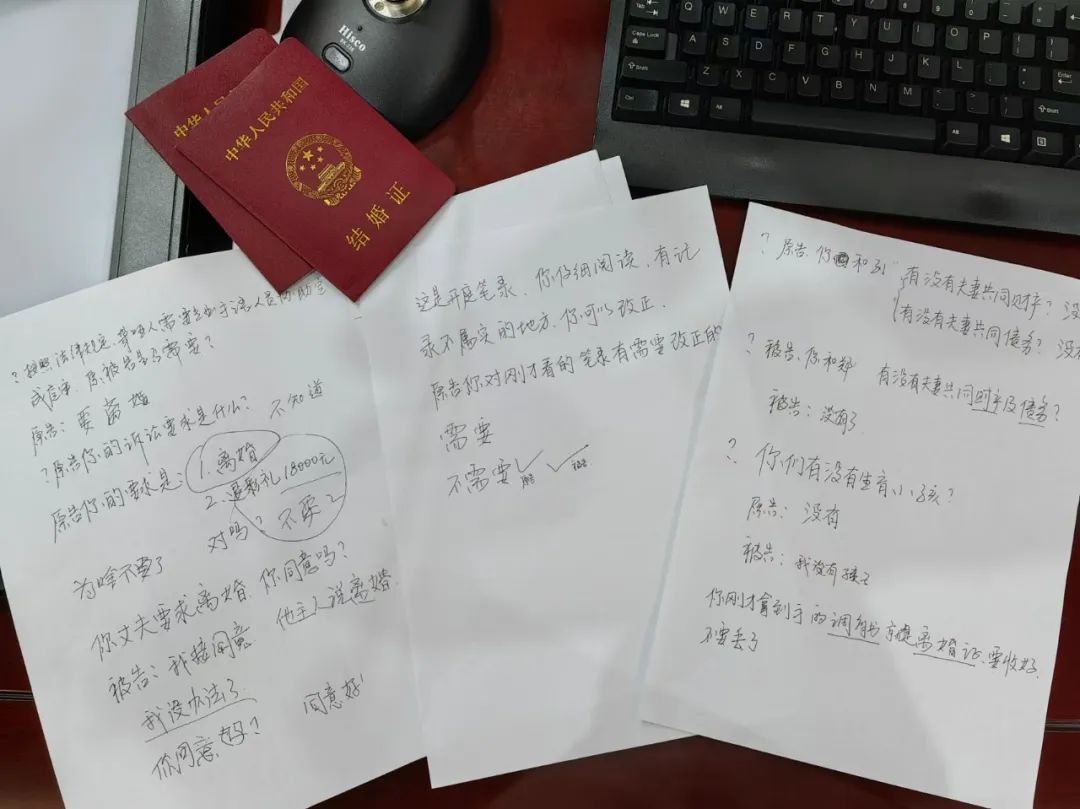 中华人民共和国
中华人民共和国
结婚证
Hisco
?按照法律规定,聋哑人需要
原告:要
?原告你的诉讼要求是什么? 不知道
原告你的要求是: 1.离婚
2.退彩礼18000元
对吗? 不要2
为啥不要了
你丈夫要求离婚,你同意吗?
被告:我接同意 他主人说离婚.
我没办法了
你同意吗? 同意好!
这是开庭笔录,你仔细阅读,有记
录不属实的地方,你可以改正.
原告你对刚才看的笔录有需要改正的
需要
不需要✓ ✓
?原告,你和
有没有夫妻共同财产? 没
有没有夫妻共同债务? 没有
?被告,你和 有没有夫妻共同财产及债务?
被告:没有了
? 你们有没有生育小孩?
原告: 没有
被告:我没有孩子
你刚才拿到手的调解书就是离婚证,要收好,
不要丢了